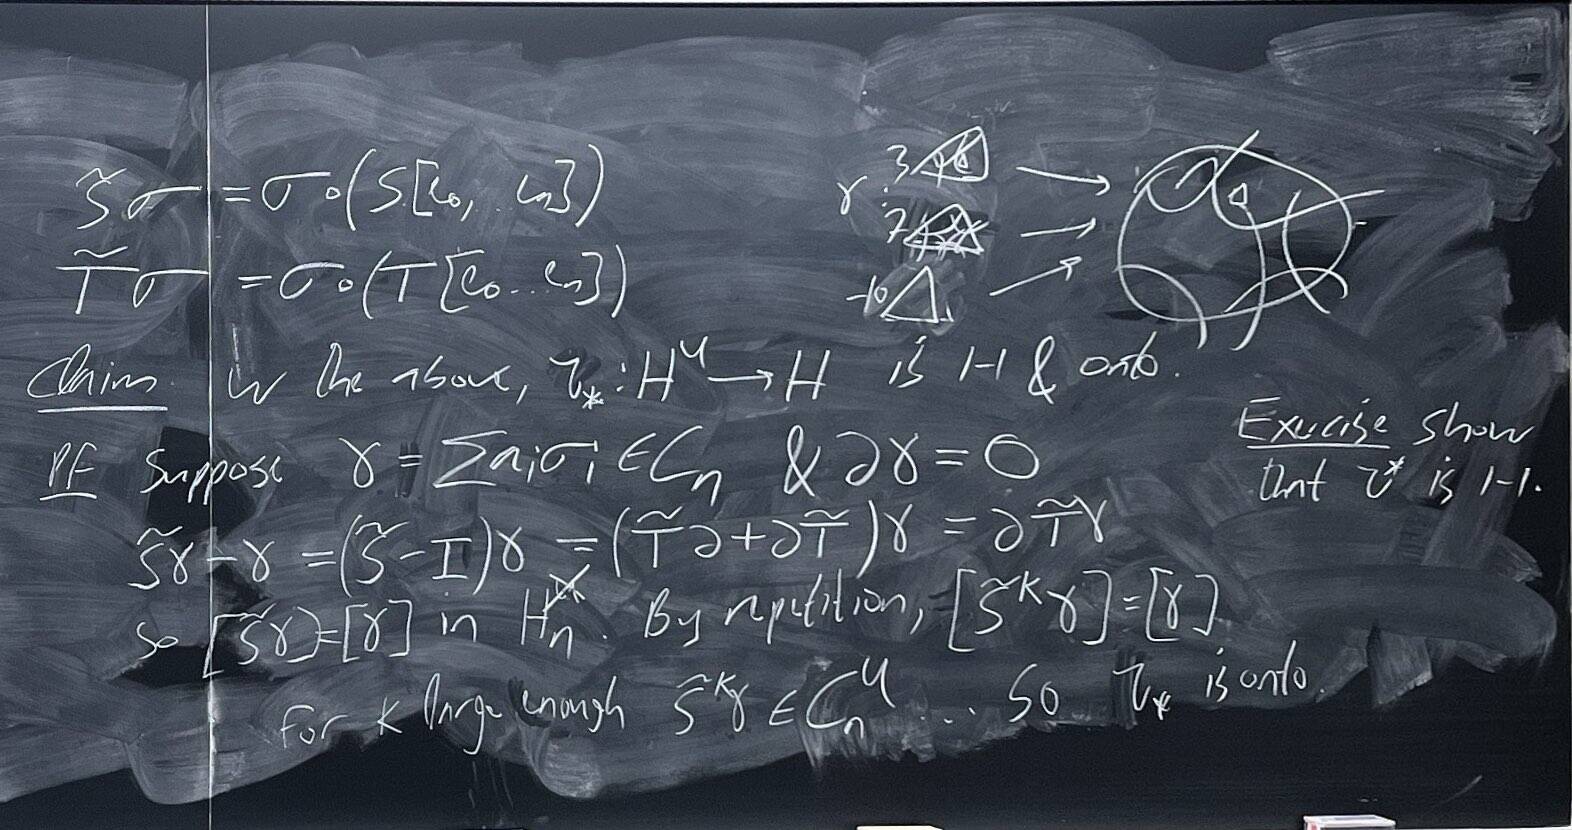 S̃σ = σ∘(S[e₀,..eₙ])
T̃σ = σ∘(T[e₀..eₙ])
γ:
3
7
-10
Claim. W the above, ι_* : H^U → H is 1-1 & onto.
PF Suppose γ = Σaᵢσᵢ ∈ Cₙ & ∂γ = 0
S̃γ - γ = (S̃ - I)γ = (T̃∂ + ∂T̃)γ = ∂T̃γ
so [S̃γ] = [γ] in Hₙ. By repetition, [S̃ᴷγ] = [γ]
For K large enough S̃ᴷγ ∈ Cₙ^U ... So ι_* is onto.
Exercise show
that ι^* is 1-1.